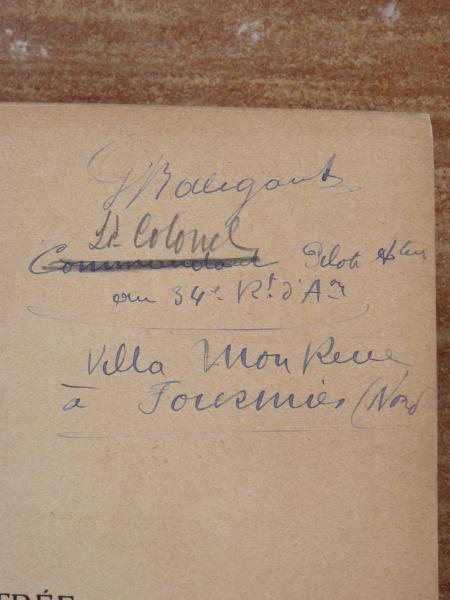 Lt Colonel
Commandant Pilote
au 34e Rt. d'Aon
Villa Mon Rêve
à Fourmies (Nord
TRÉE